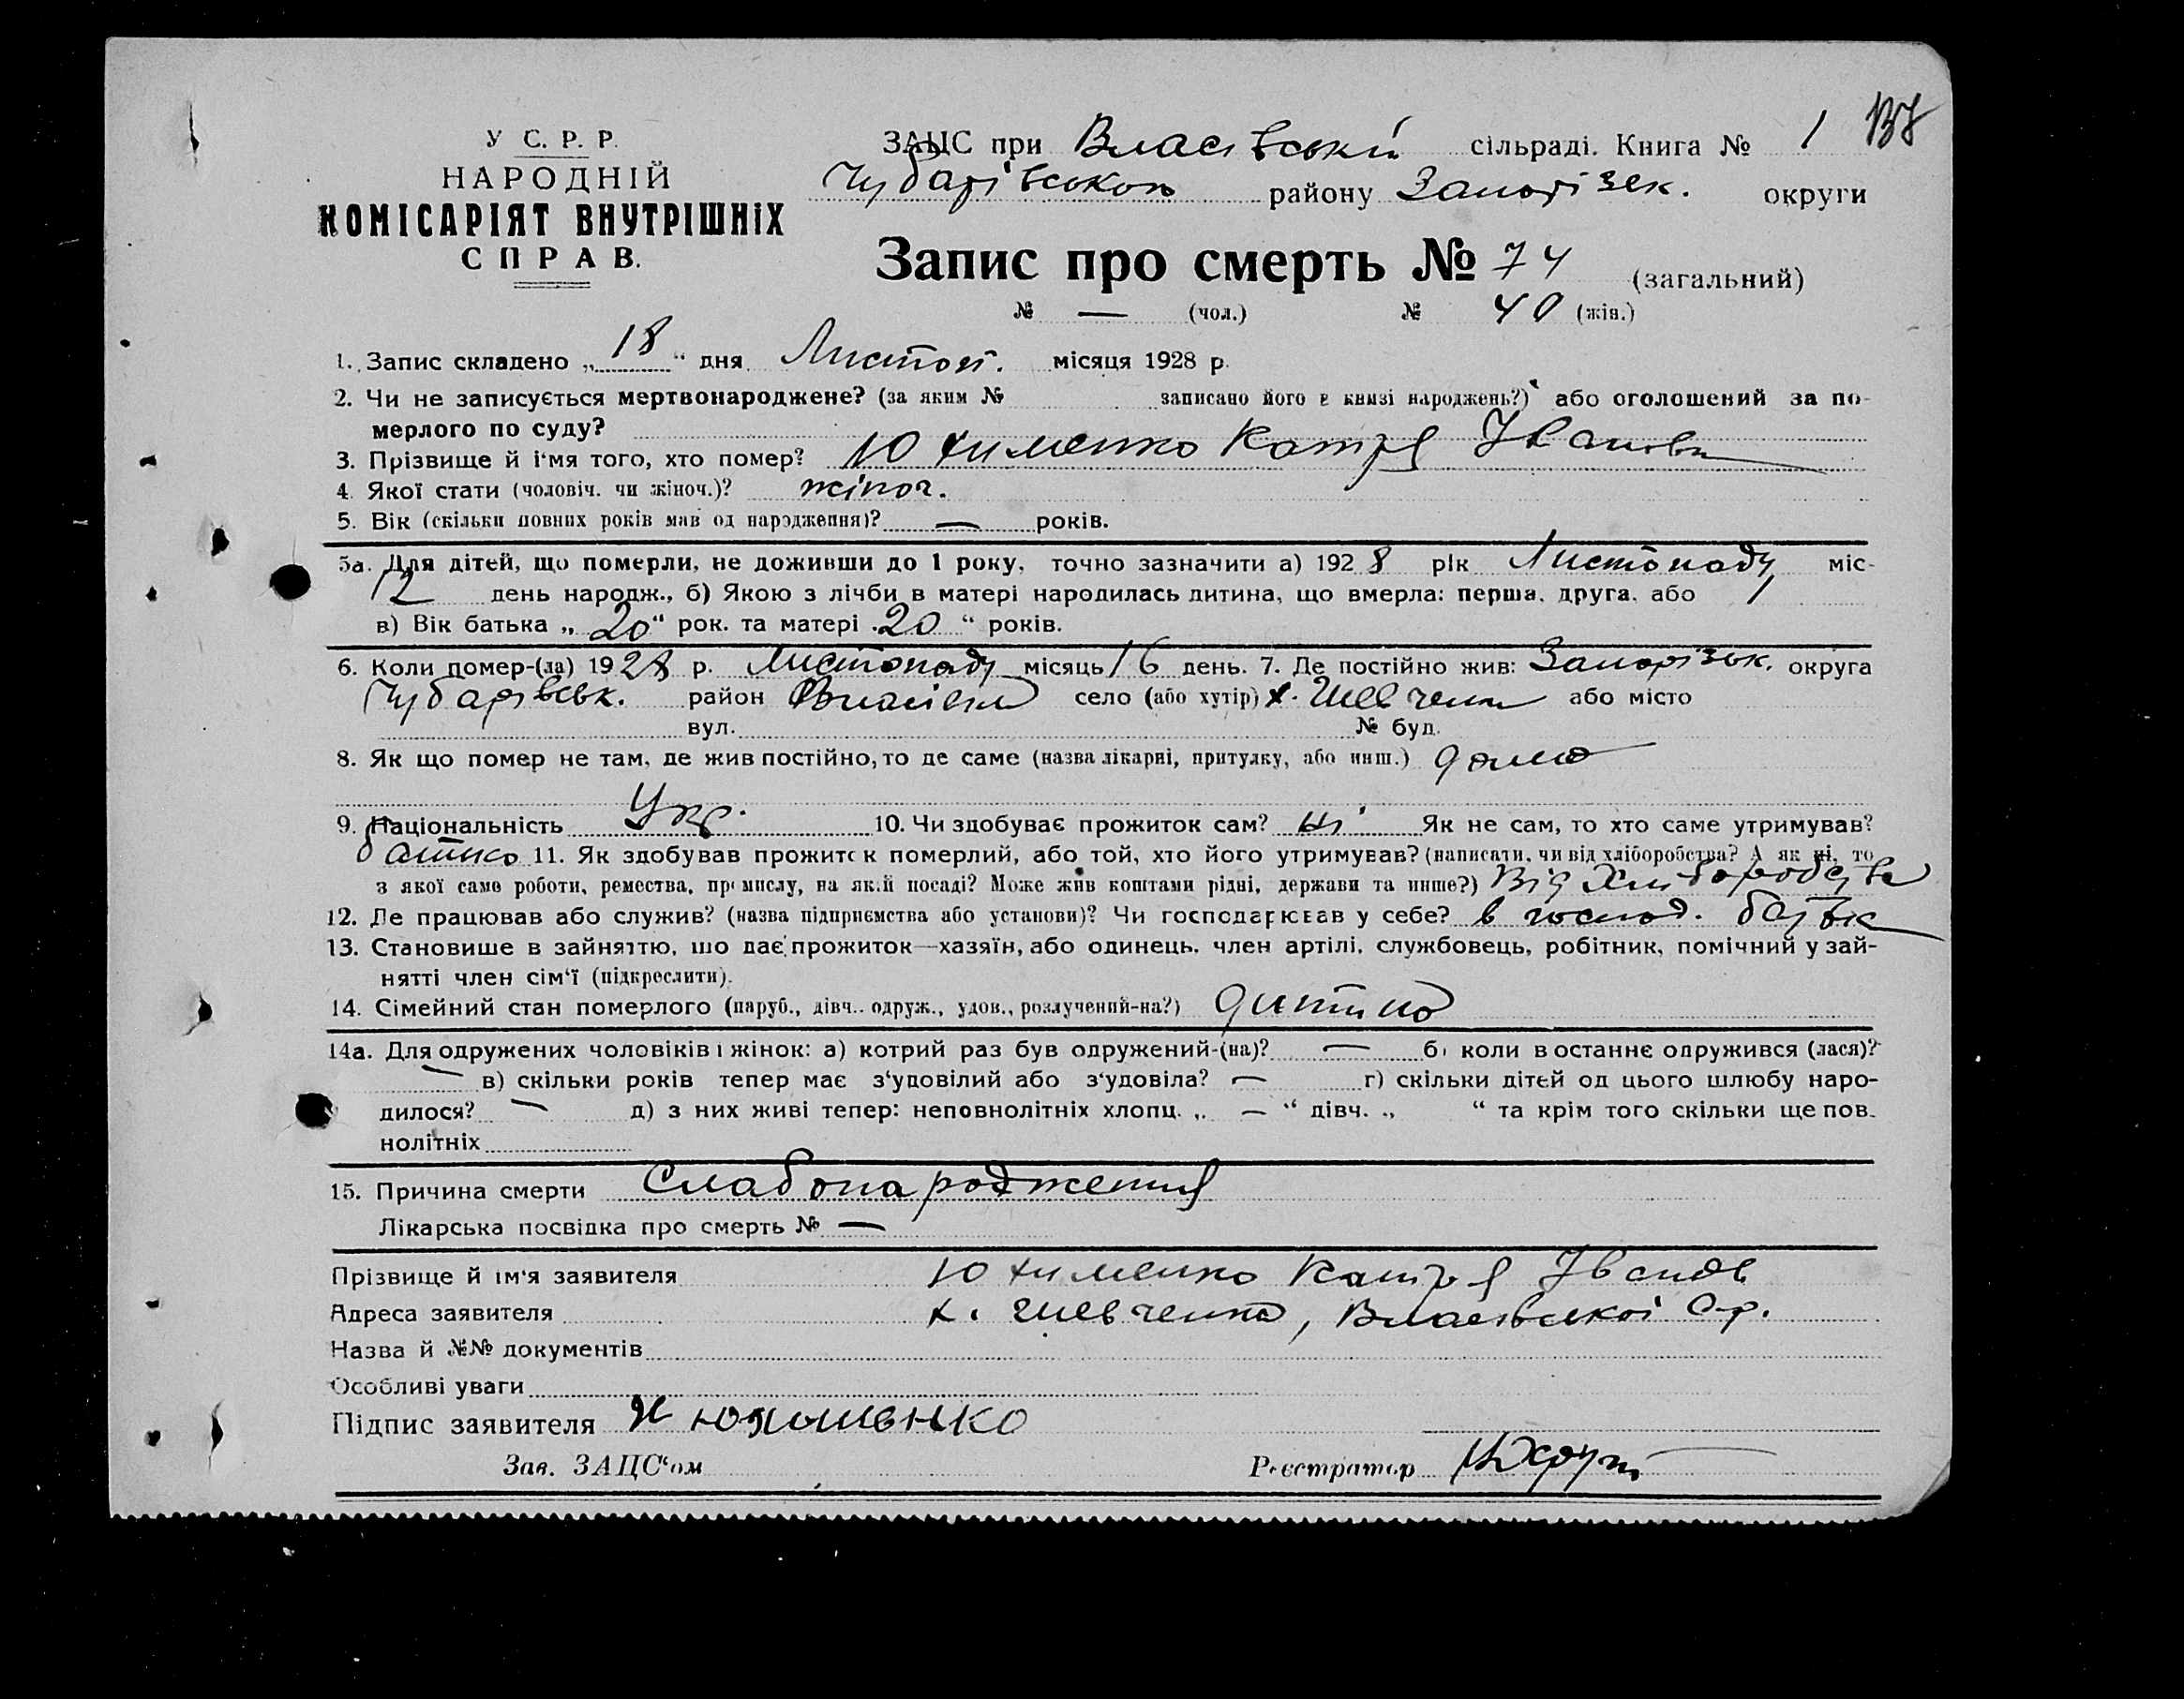 У С. Р. Р.
НАРОДНІЙ
КОМІСАРІЯТ ВНУТРІШНІХ
СПРАВ.
ЗАЦС при Власівській сільраді. Книга № 1 137
Чубарівського району Запоріжк. округи
Запис про смерть № 74 (загальний)
№ — (чол.) № 40 (жін.)
1. Запис складено „18“ дня Листоп. місяця 1928 р.
2. Чи не записується мертвонароджене? (за яким № записано його в книзі народжень?) або оголошений за по-
мерлого по суду?
3. Прізвище й ім'я того, хто помер? Юхименко Катря Іванівн
4. Якої стати (чоловіч. чи жіноч.)? жіноч.
5. Вік (скільки повних років мав од народження)? — років.
5а. Для дітей, що померли, не доживши до 1 року, точно зазначити а) 1928 рік Листопаду міс-
12 день народж., б) Якою з лічби в матері народилась дитина, що вмерла: перша, друга, або 1
в) Вік батька „20“ рок. та матері „20“ років.
6. Коли помер-(ла) 1928 р. Листопаду місяць 16 день. 7. Де постійно жив: Запоріжк. округа
Чубарівськ. район село (або хутір) х. Шевченк або місто
вул. № буд.
8. Як що помер не там, де жив постійно, то де саме (назва лікарні, притулку, або инш.) дома
9. Національність Укр. 10. Чи здобуває прожиток сам? ні Як не сам, то хто саме утримував?
батько 11. Як здобував прожиток померлий, або той, хто його утримував? (написати, чи від хліборобства? А як ні, то
з якої саме роботи, ремества, промислу, на якій посаді? Може жив коштами рідні, держави та инше?) Від Хліборобства
12. Де працював або служив? (назва підприємства або установи)? Чи господарював у себе? в господ. батьк
13. Становише в зайняттю, що дає прожиток—хазяїн, або одинець, член артілі, службовець, робітник, помічний у зай-
нятті член сім'ї (підкреслити).
14. Сімейний стан померлого (паруб., дівч.. одруж., удов., розлучений-на?) дитина
14а. Для одружених чоловіків і жінок: а) котрий раз був одружений-(на)? — б) коли в останнє одружився (лася)?
— в) скільки років тепер має з'удовілий або з'удовіла? — г) скільки дітей од цього шлюбу наро-
дилося? — д) з них живі тепер: неповнолітніх хлопц. „ — “ дівч. „ “ та крім того скільки ще пов.
нолітніх
15. Причина смерти Слабонародження
Лікарська посвідка про смерть № —
Прізвище й ім'я заявителя Юхименко Катря Іванів
Адреса заявителя х. Шевченка, Власівської С-р.
Назва й №№ документів
Особливі уваги
Підпис заявителя
Зав. ЗАЦС'ом Реєстратор